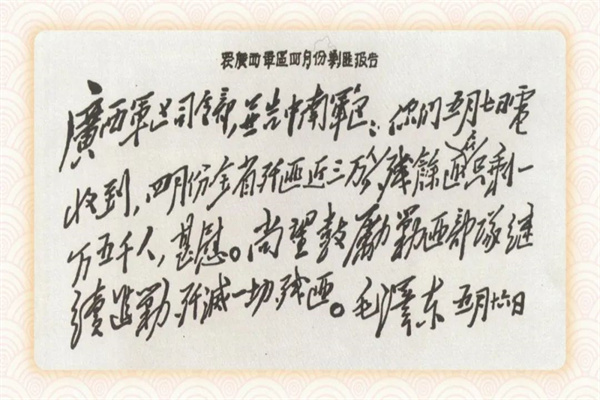 广西軍區四月份剿匪报告
廣西軍区司令部,並告中南軍区:你们五月七日電
收到,四月份全省歼匪近三万,殘餘匪只剩一
万五千人,甚慰。尚望鼓勵勦匪部隊继
續追勦,歼滅一切残匪。毛澤东 五月十六日